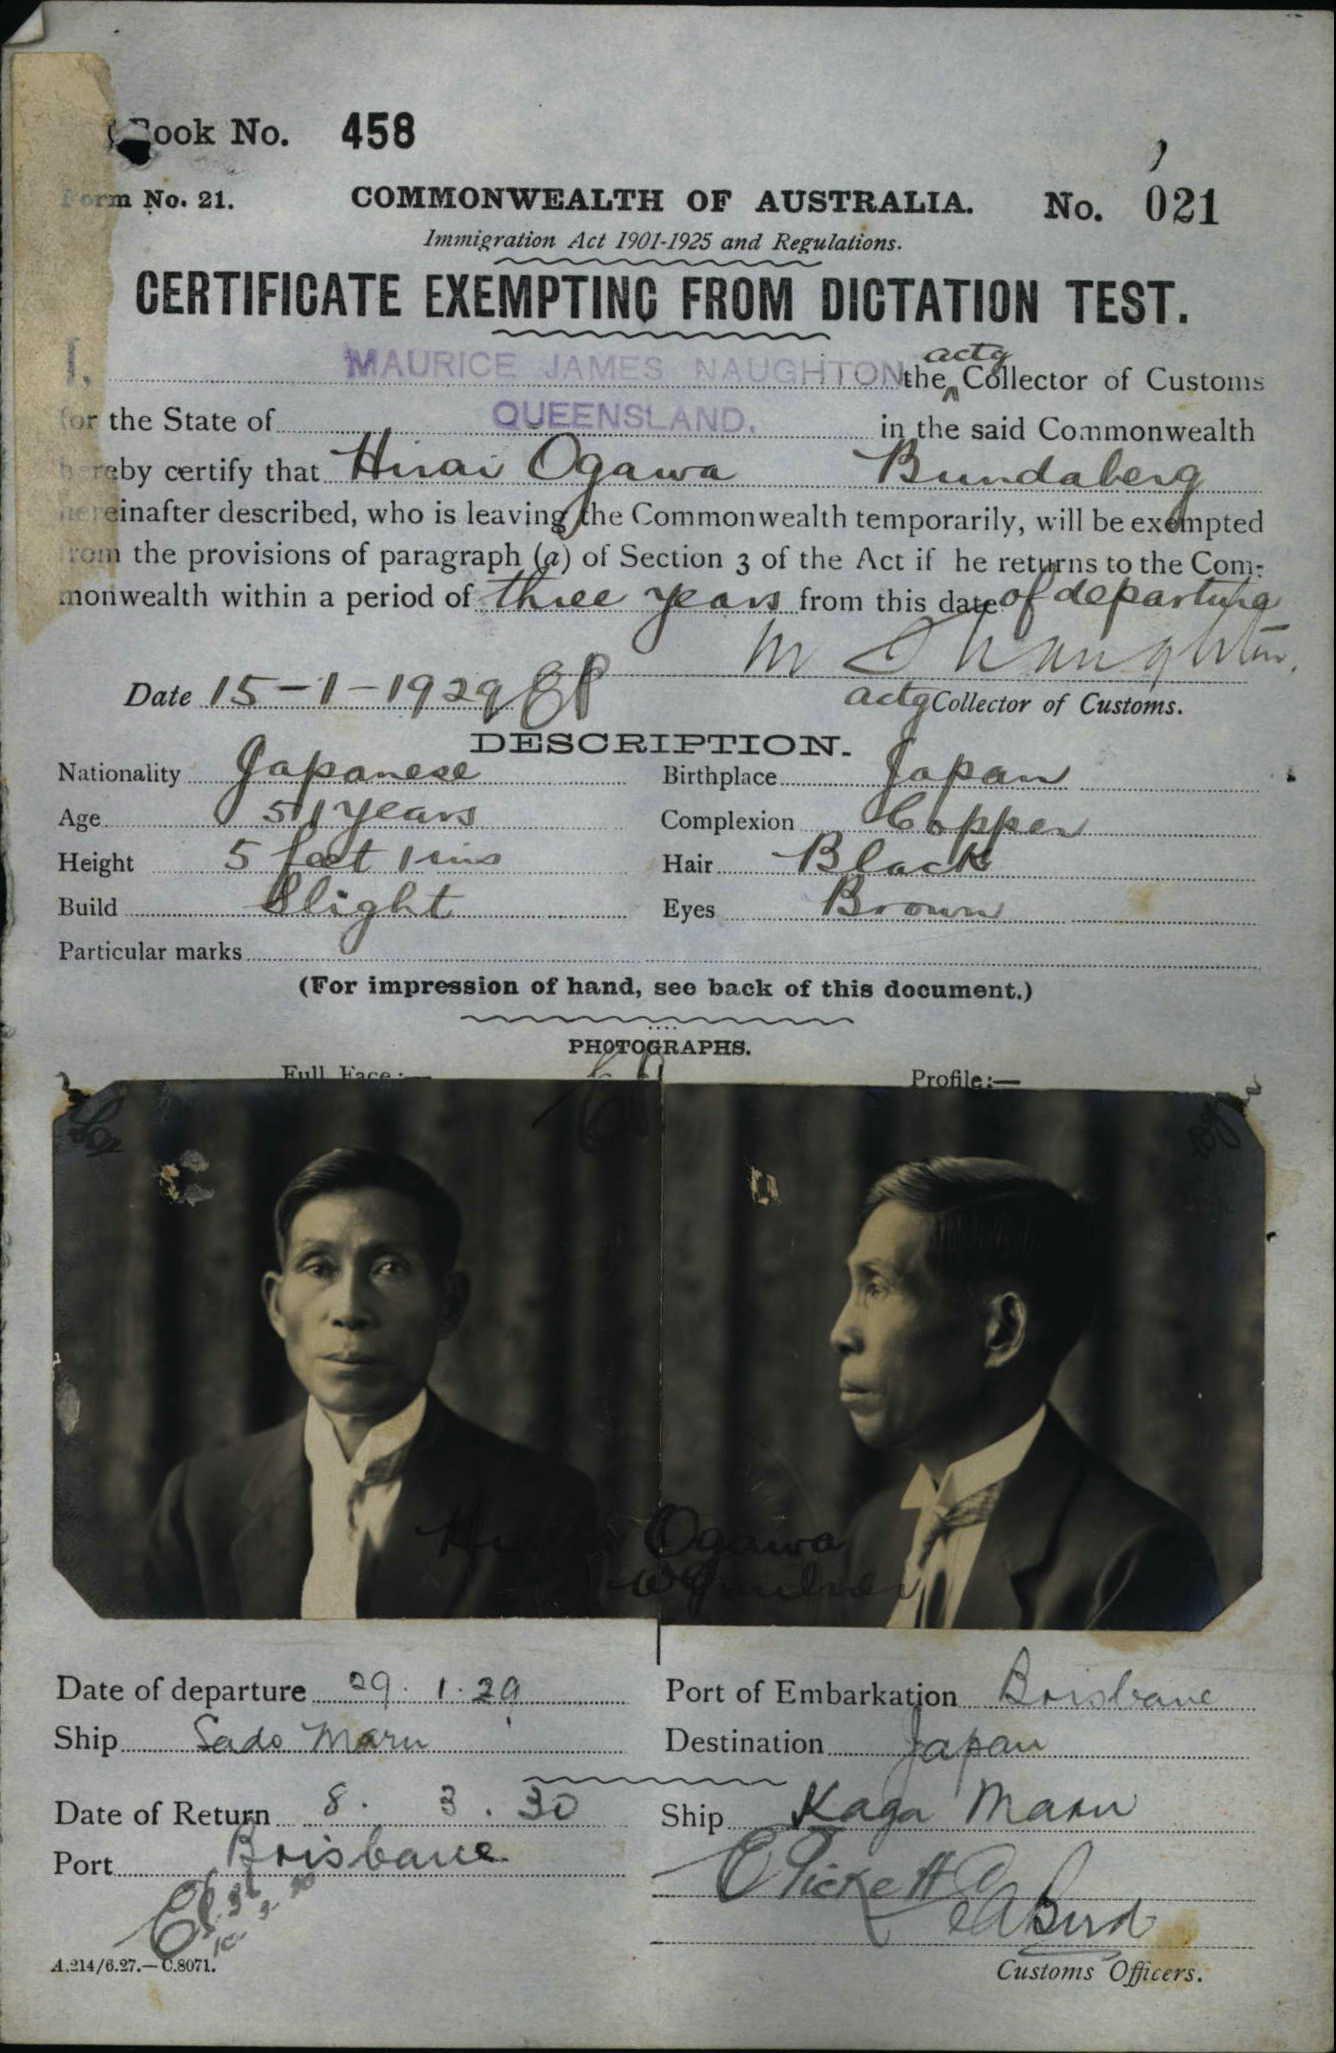 Book No. 458
Form No. 21. COMMONWEALTH OF AUSTRALIA. No. 021
Immigration Act 1901-1925 and Regulations.
CERTIFICATE EXEMPTING FROM DICTATION TEST.
I, MAURICE JAMES NAUGHTON the actg Collector of Customs
for the State of QUEENSLAND. in the said Commonwealth
hereby certify that Hirai Ogawa Bundaberg
hereinafter described, who is leaving the Commonwealth temporarily, will be exempted
from the provisions of paragraph (a) of Section 3 of the Act if he returns to the Com-
monwealth within a period of three years from this date of departure
M J Naughton.
Date 15-1-1929 actg Collector of Customs.
DESCRIPTION.
Nationality Japanese Birthplace Japan
Age 51 years Complexion Copper
Height 5 feet 1 ins Hair Black
Build Slight Eyes Brown
Particular marks
(For impression of hand, see back of this document.)
PHOTOGRAPHS.
Full Face:— Profile:—
Ogawa
Date of departure 29.1.29 Port of Embarkation Brisbane
Ship Sado Maru Destination Japan
Date of Return 8.3.30 Ship Kaga Maru
Port Brisbane
E Pickett
Bird
A.214/6.27.—C.8071. Customs Officers.